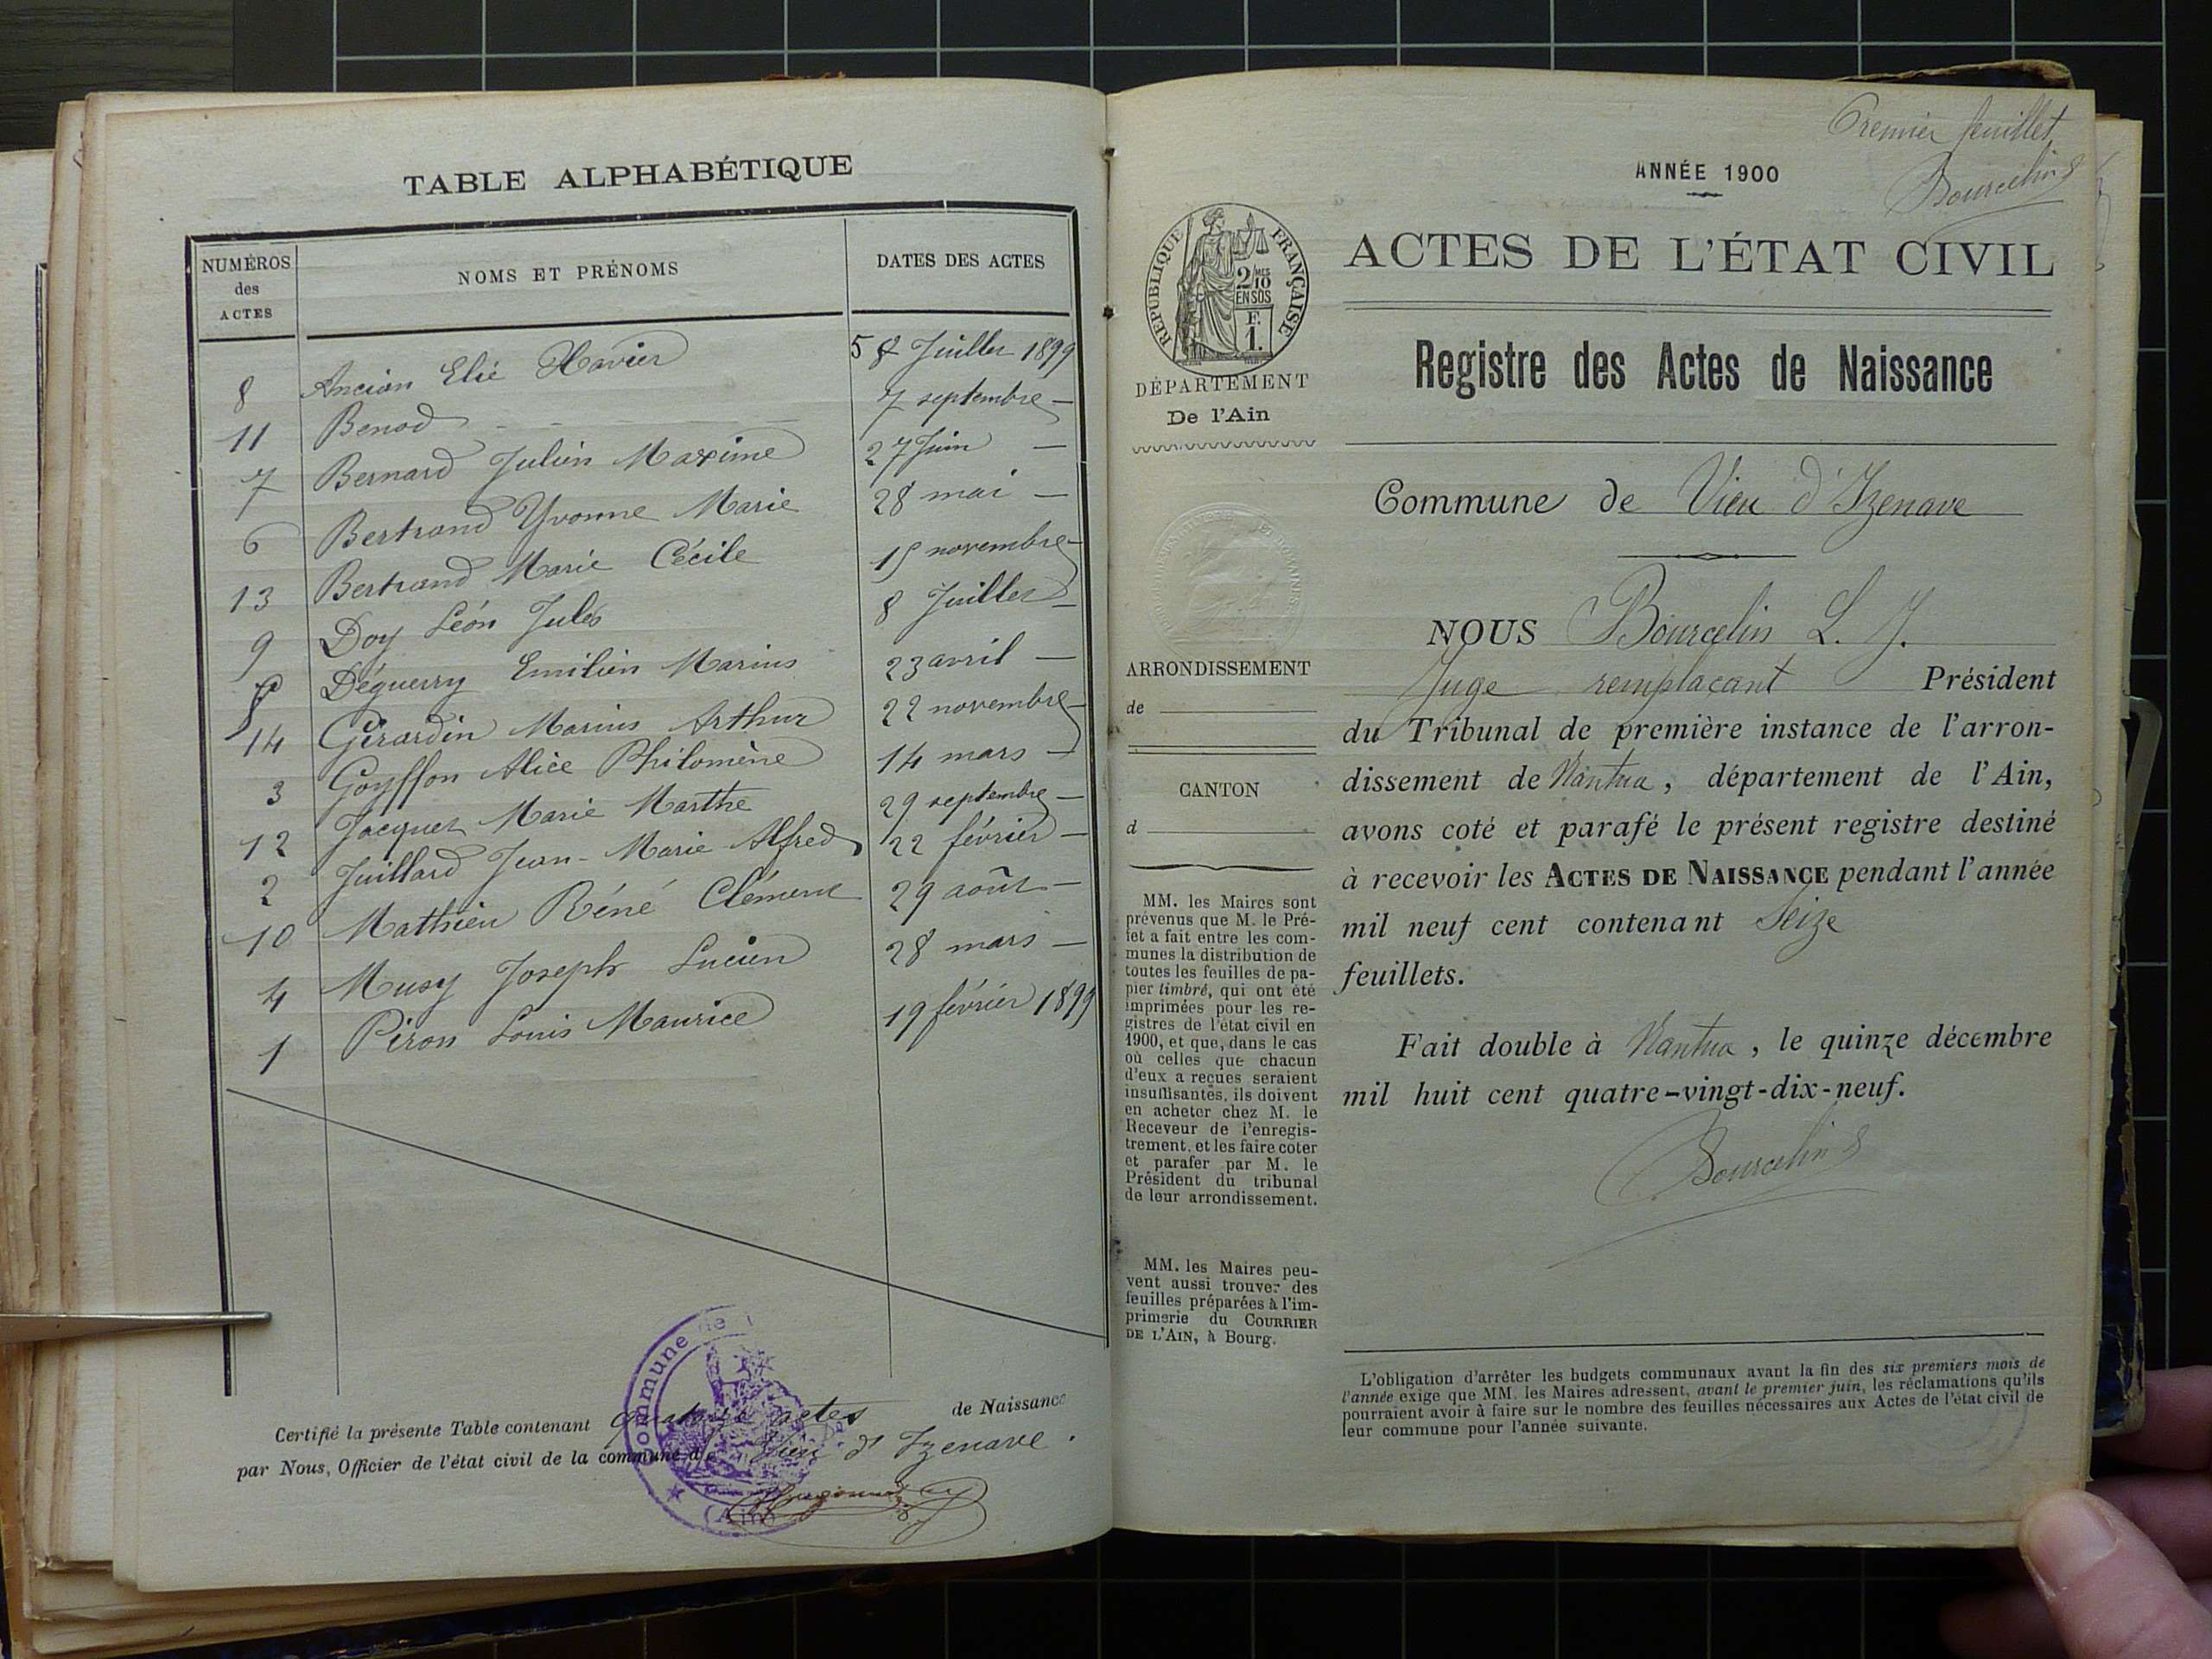 TABLE ALPHABÉTIQUE
NUMÉROS des ACTES
NOMS ET PRÉNOMS
DATES DES ACTES
8 Ancian Elie Xavier 5 Juillet 1899
11 Benod 7 septembre
7 Bernard Julien Maxime 27 Juin
6 Bertrand Yvonne Marie 28 mai
13 Bertrand Marie Cécile 15 novembre
9 Doy Léon Jules 8 Juillet
Déguerry Emilien Marius 23 avril
14 Girardin Marius Arthur 22 novembre
3 Goyffon Alice Philomène 14 mars
12 Jacquet Marie Marthe 29 septembre
2 Juillard Jean-Marie Alfred 22 février
10 Mathieu Réné Clément 29 août
4 Musy Joseph Lucien 28 mars
1 Piron Louis Maurice 19 février 1899
Certifié la présente Table contenant quatorze actes de Naissance
par Nous, Officier de l'état civil de la commune de Vieu d'Izenave.
Commune de
(Ain)
Premier feuillet
Bourcelin
ANNÉE 1900
ACTES DE L'ÉTAT CIVIL
Registre des Actes de Naissance
RÉPUBLIQUE FRANÇAISE
2/10
EN SUS
F.
1.
DÉPARTEMENT
De l'Ain
Commune de Vieu d'Izenave
NOUS Bourcelin L. J.
Juge remplaçant Président
du Tribunal de première instance de l'arron-
dissement de Nantua, département de l'Ain,
avons coté et parafé le présent registre destiné
à recevoir les ACTES DE NAISSANCE pendant l'année
mil neuf cent contenant Seize
feuillets.
Fait double à Nantua, le quinze décembre
mil huit cent quatre-vingt-dix-neuf.
Bourcelin
ARRONDISSEMENT
de
CANTON
d
MM. les Maires sont
prévenus que M. le Pré-
fet a fait entre les com-
munes la distribution de
toutes les feuilles de pa-
pier timbré, qui ont été
imprimées pour les re-
gistres de l'état civil en
1900, et que, dans le cas
où celles que chacun
d'eux a reçues seraient
insuffisantes, ils doivent
en acheter chez M. le
Receveur de l'enregis-
trement, et les faire coter
et parafer par M. le
Président du tribunal
de leur arrondissement.
MM. les Maires peu-
vent aussi trouver des
feuilles préparées à l'im-
primerie du COURRIER
DE L'AIN, à Bourg.
L'obligation d'arrêter les budgets communaux avant la fin des six premiers mois de
l'année exige que MM. les Maires adressent, avant le premier juin, les réclamations qu'ils
pourraient avoir à faire sur le nombre des feuilles nécessaires aux Actes de l'état civil de
leur commune pour l'année suivante.